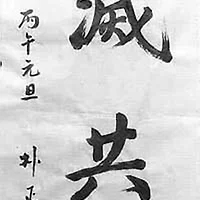 滅共
丙午元旦
朴正